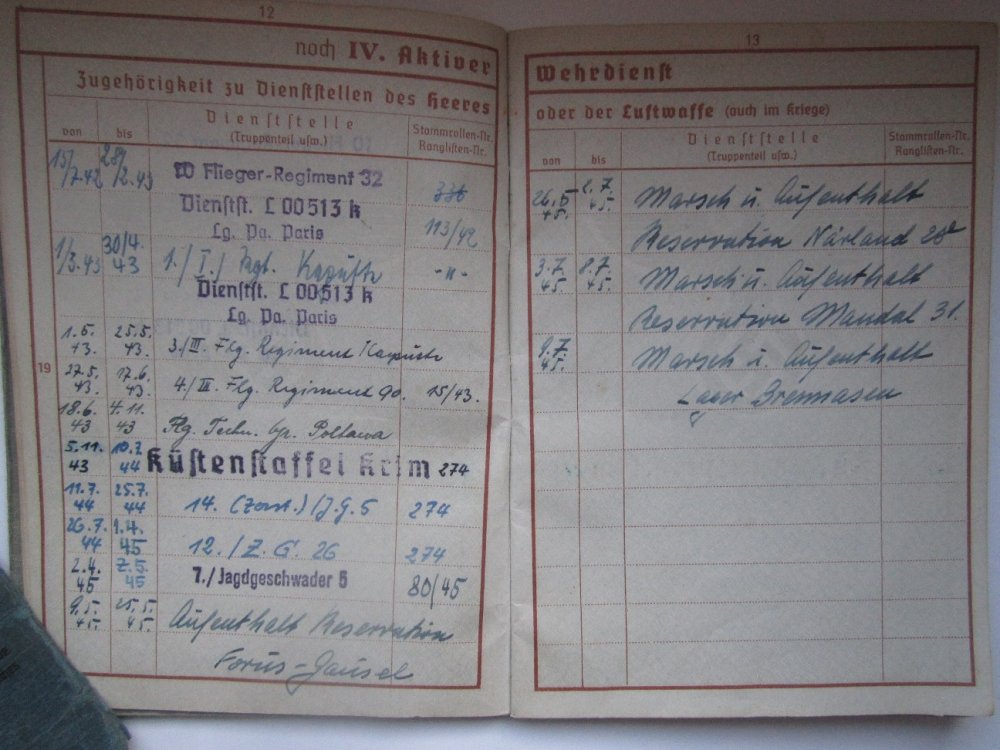 12
noch IV. Aktiver
Zugehörigkeit zu Dienststellen des Heeres
von bis Dienststelle (Truppenteil usw.) Stammrollen-Nr. Ranglisten-Nr.
15/7.42 28/2.43 Flieger-Regiment 32 336
Dienstst. L 00513 k 113/42
Lg. Pa. Paris
1/3.43 30/4.43 1./I./ Rgt. Kapüste -"-
Dienstst. L 00513 k
Lg. Pa. Paris
1.5.43. 25.5.43. 3./III. Flg. Regiment Kapüste
19
27.5.43. 17.6.43. 4./III. Flg. Regiment 90. 15/43.
18.6.43 4.11.43 Flg. Techn. Poltawa
5.11.43 10.7.44 Küstenstaffel Krim 274
11.7.44 25.7.44 14. (Zerst.)/J.G.5 274
26.7.44 1.4.45 12./Z.G. 26 274
2.4.45 7./Jagdgeschwader 5 80/45
9.5.45. 25.5.45. Aufenthalt Reservation
Forus-Gausel
13
Wehrdienst
oder der Luftwaffe (auch im Kriege)
von bis Dienststelle (Truppenteil usw.) Stammrollen-Nr. Ranglisten-Nr.
26.5.45. 2.7.45. Marsch u. Aufenthalt
Reservation Närland 28
3.7.45. 8.7.45. Marsch u. Aufenthalt
Reservation Mandal 31.
9.7.45. Marsch u. Aufenthalt
Lager Brennasen